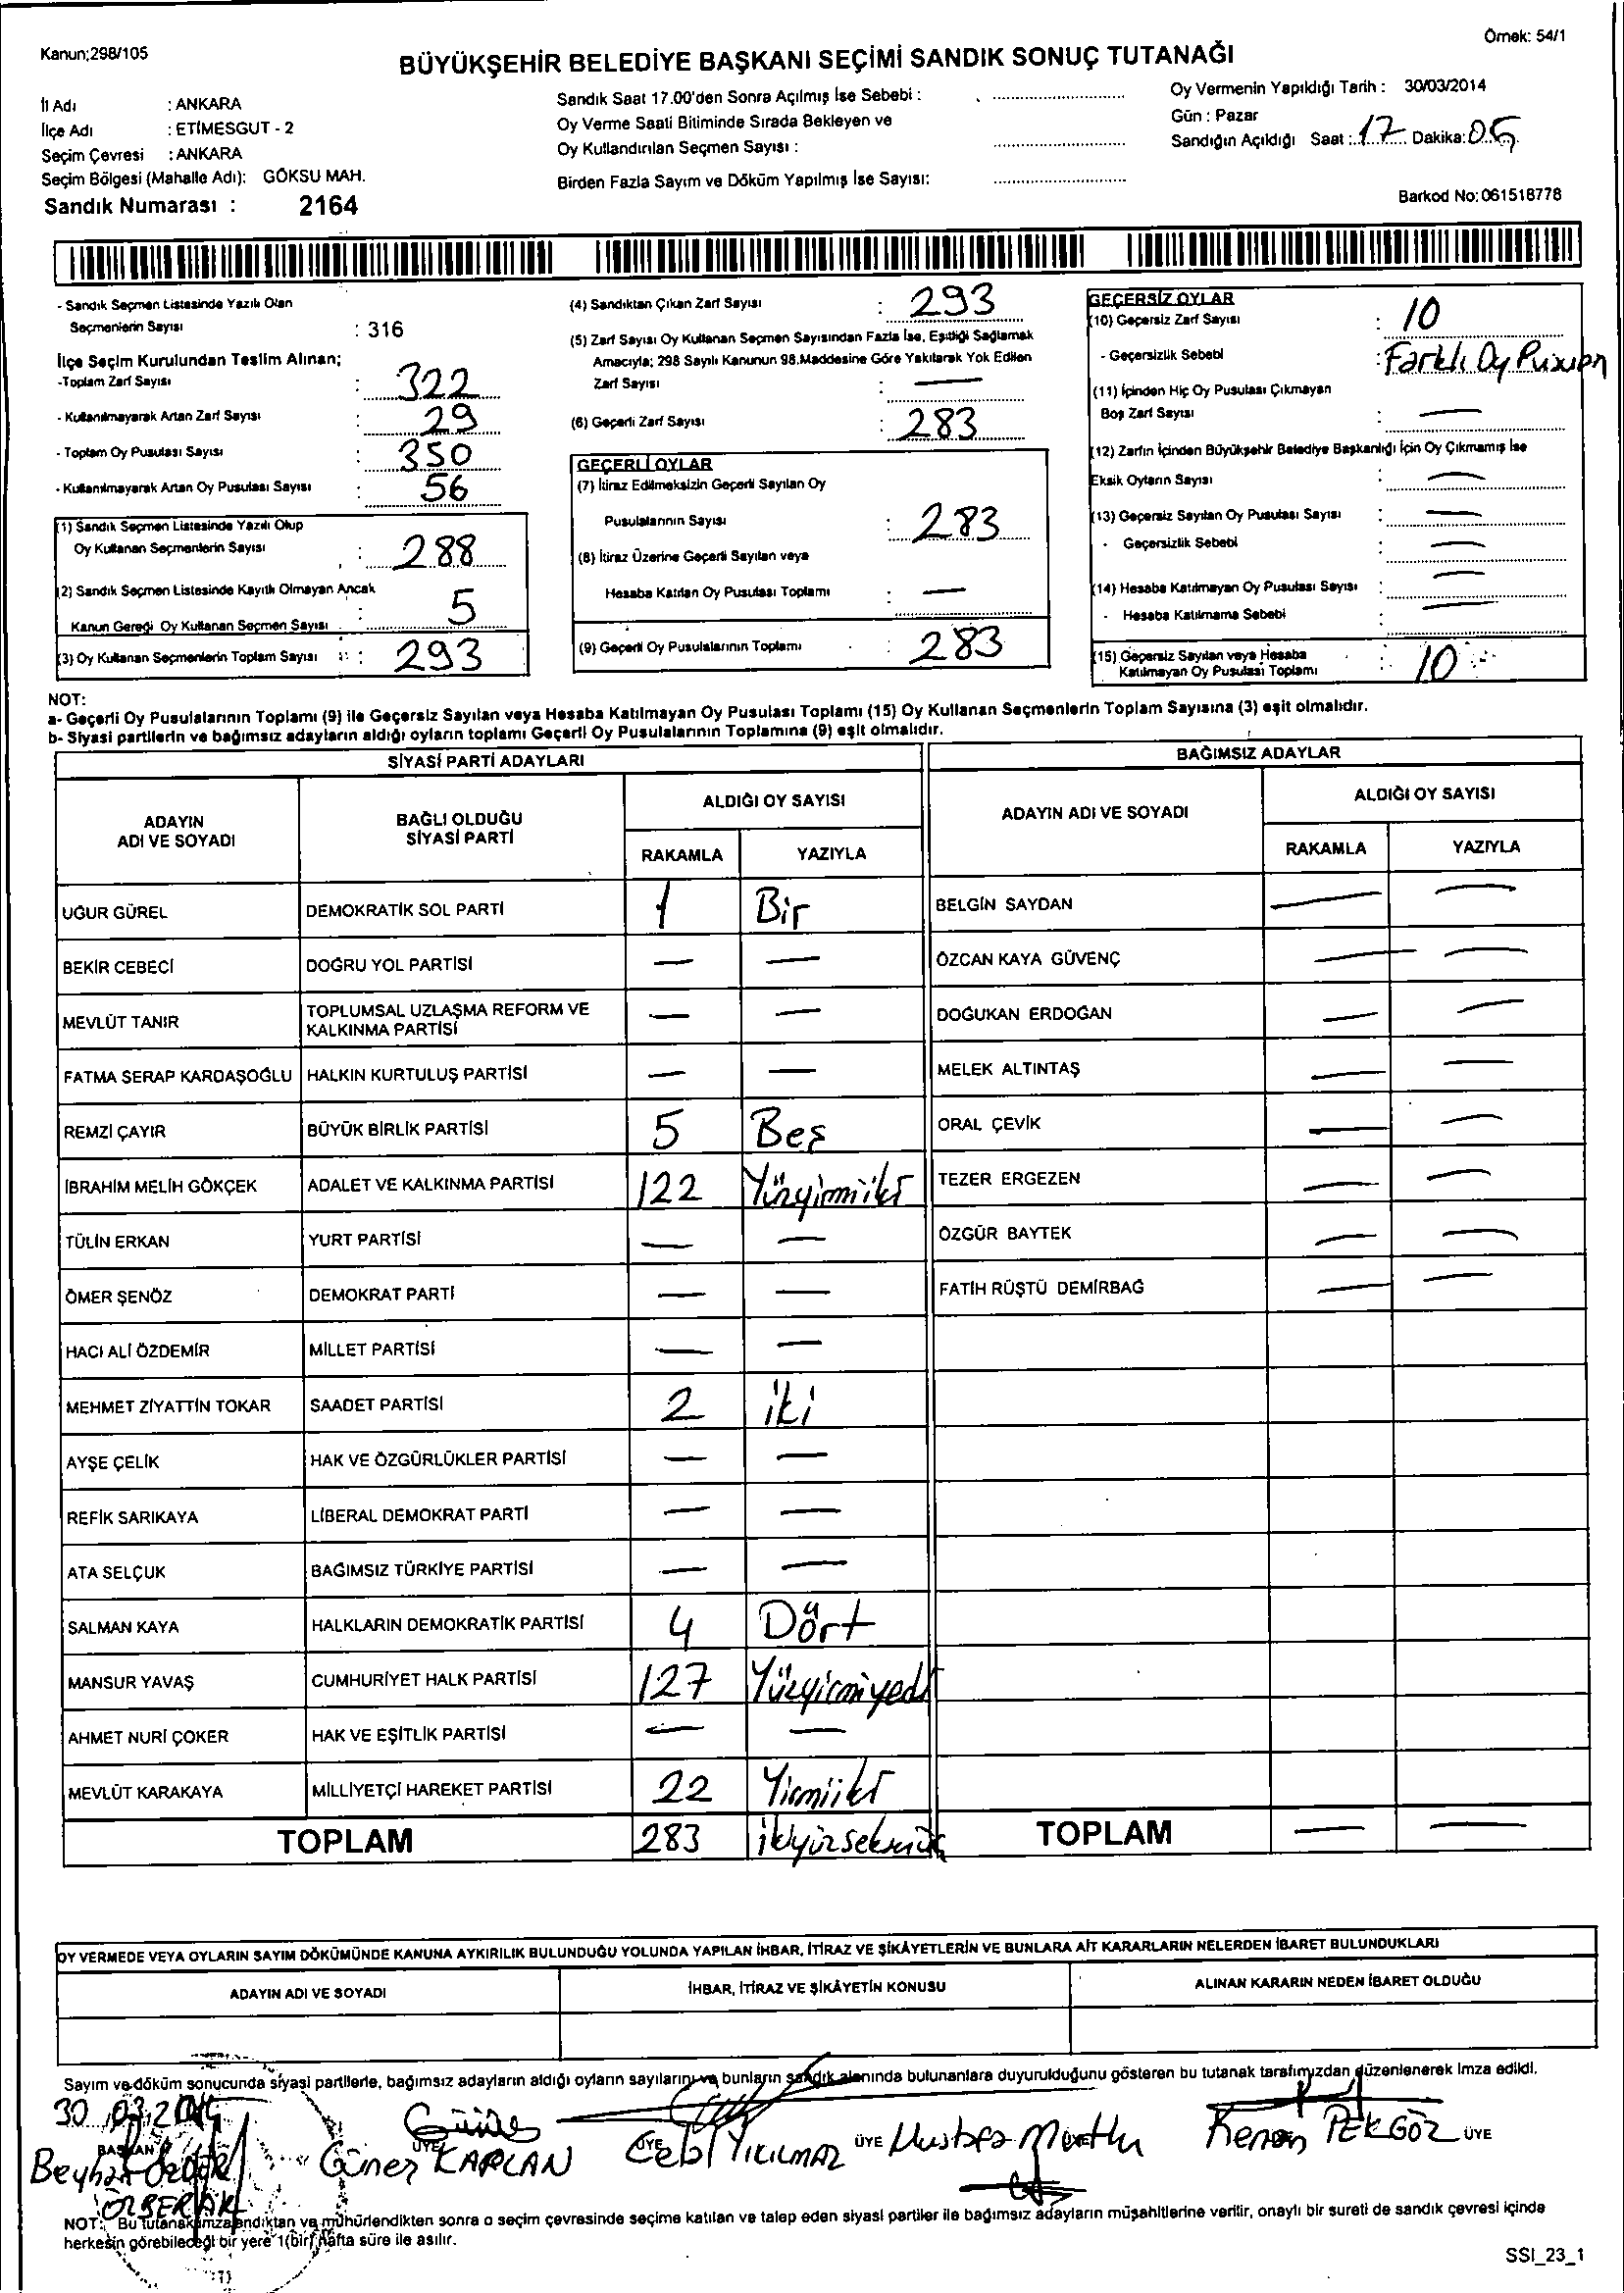 Kanun;298/105
Örnek: 54/1
BÜYÜKŞEHİR BELEDİYE BAŞKANI SEÇİMİ SANDIK SONUÇ TUTANAĞI
İl Adı : ANKARA
İlçe Adı : ETİMESGUT - 2
Seçim Çevresi : ANKARA
Seçim Bölgesi (Mahalle Adı): GÖKSU MAH.
Sandık Numarası : 2164
Sandık Saat 17.00'den Sonra Açılmış İse Sebebi :
Oy Verme Saati Bitiminde Sırada Bekleyen ve
Oy Kullandırılan Seçmen Sayısı :
Birden Fazla Sayım ve Döküm Yapılmış İse Sayısı:
Oy Vermenin Yapıldığı Tarih : 30/03/2014
Gün : Pazar
Sandığın Açıldığı Saat : 17 Dakika: 05
Barkod No: 061518778
- Sandık Seçmen Listesinde Yazılı Olan
Seçmenlerin Sayısı : 316
İlçe Seçim Kurulundan Teslim Alınan;
-Toplam Zarf Sayısı : 322
- Kullanılmayarak Artan Zarf Sayısı : 29
- Toplam Oy Pusulası Sayısı : 350
- Kullanılmayarak Artan Oy Pusulası Sayısı : 56
(1) Sandık Seçmen Listesinde Yazılı Olup
Oy Kullanan Seçmenlerin Sayısı : 288
(2) Sandık Seçmen Listesinde Kayıtlı Olmayan Ancak
Kanun Gereği Oy Kullanan Seçmen Sayısı : 5
(3) Oy Kullanan Seçmenlerin Toplam Sayısı : 293
(4) Sandıktan Çıkan Zarf Sayısı : 293
(5) Zarf Sayısı Oy Kullanan Seçmen Sayısından Fazla İse, Eşitliği Sağlamak
Amacıyla; 298 Sayılı Kanunun 98.Maddesine Göre Yakılarak Yok Edilen
Zarf Sayısı : —
(6) Geçerli Zarf Sayısı : 283
GEÇERLİ OYLAR
(7) İtiraz Edilmeksizin Geçerli Sayılan Oy
Pusulalarının Sayısı : 283
(8) İtiraz Üzerine Geçerli Sayılan veya
Hesaba Katılan Oy Pusulası Toplamı : —
(9) Geçerli Oy Pusulalarının Toplamı : 283
GEÇERSİZ OYLAR
(10) Geçersiz Zarf Sayısı : 10
- Geçersizlik Sebebi : Farklı Oy
(11) İçinden Hiç Oy Pusulası Çıkmayan
Boş Zarf Sayısı : —
(12) Zarfın İçinden Büyükşehir Belediye Başkanlığı İçin Oy Çıkmamış İse
Eksik Oyların Sayısı : —
(13) Geçersiz Sayılan Oy Pusulası Sayısı : —
- Geçersizlik Sebebi : —
(14) Hesaba Katılmayan Oy Pusulası Sayısı : —
- Hesaba Katılmama Sebebi : —
(15) Geçersiz Sayılan veya Hesaba
Katılmayan Oy Pusulası Toplamı : 10
NOT:
a- Geçerli Oy Pusulalarının Toplamı (9) ile Geçersiz Sayılan veya Hesaba Katılmayan Oy Pusulası Toplamı (15) Oy Kullanan Seçmenlerin Toplam Sayısına (3) eşit olmalıdır.
b- Siyasi partilerin ve bağımsız adayların aldığı oyların toplamı Geçerli Oy Pusulalarının Toplamına (9) eşit olmalıdır.
SİYASİ PARTİ ADAYLARI
ADAYIN ADI VE SOYADI
BAĞLI OLDUĞU SİYASİ PARTİ
ALDIĞI OY SAYISI
RAKAMLA YAZIYLA
UĞUR GÜREL DEMOKRATİK SOL PARTİ 1 Bir
BEKİR CEBECİ DOĞRU YOL PARTİSİ — —
MEVLÜT TANIR TOPLUMSAL UZLAŞMA REFORM VE KALKINMA PARTİSİ — —
FATMA SERAP KARDAŞOĞLU HALKIN KURTULUŞ PARTİSİ — —
REMZİ ÇAYIR BÜYÜK BİRLİK PARTİSİ 5 Beş
İBRAHİM MELİH GÖKÇEK ADALET VE KALKINMA PARTİSİ 122 Yüzyirmiiki
TÜLİN ERKAN YURT PARTİSİ — —
ÖMER ŞENÖZ DEMOKRAT PARTİ — —
HACI ALİ ÖZDEMİR MİLLET PARTİSİ — —
MEHMET ZİYATTİN TOKAR SAADET PARTİSİ 2 iki
AYŞE ÇELİK HAK VE ÖZGÜRLÜKLER PARTİSİ — —
REFİK SARIKAYA LİBERAL DEMOKRAT PARTİ — —
ATA SELÇUK BAĞIMSIZ TÜRKİYE PARTİSİ — —
SALMAN KAYA HALKLARIN DEMOKRATİK PARTİSİ 4 Dört
MANSUR YAVAŞ CUMHURİYET HALK PARTİSİ 127 Yüzyirmiyedi
AHMET NURİ ÇOKER HAK VE EŞİTLİK PARTİSİ — —
MEVLÜT KARAKAYA MİLLİYETÇİ HAREKET PARTİSİ 22 Yirmiiki
TOPLAM 283 ikiyüzseksenüç
BAĞIMSIZ ADAYLAR
ADAYIN ADI VE SOYADI
ALDIĞI OY SAYISI
RAKAMLA YAZIYLA
BELGİN SAYDAN — —
ÖZCAN KAYA GÜVENÇ — —
DOĞUKAN ERDOĞAN — —
MELEK ALTINTAŞ — —
ORAL ÇEVİK — —
TEZER ERGEZEN — —
ÖZGÜR BAYTEK — —
FATİH RÜŞTÜ DEMİRBAĞ — —
TOPLAM — —
OY VERMEDE VEYA OYLARIN SAYIM DÖKÜMÜNDE KANUNA AYKIRILIK BULUNDUĞU YOLUNDA YAPILAN İHBAR, İTİRAZ VE ŞİKÂYETLERİN VE BUNLARA AİT KARARLARIN NELERDEN İBARET BULUNDUKLARI
ADAYIN ADI VE SOYADI
İHBAR, İTİRAZ VE ŞİKÂYETİN KONUSU
ALINAN KARARIN NEDEN İBARET OLDUĞU
Sayım ve döküm sonucunda siyasi partilerle, bağımsız adayların aldığı oyların sayılarını ve bunların sandık alanında bulunanlara duyurulduğunu gösteren bu tutanak tarafımızdan düzenlenerek imza edildi.
30.03.2014
BAŞKAN ÜYE ÜYE ÜYE ÜYE
Beyhan Güner KAPLAN YIKILMAZ Mustafa Kenan PEKGÖZ
NOT: Bu tutanak imzalandıktan ve mühürlendikten sonra o seçim çevresinde seçime katılan ve talep eden siyasi partiler ile bağımsız adayların müşahitlerine verilir, onaylı bir sureti de sandık çevresi içinde
herkesin görebileceği bir yere 1(bir) hafta süre ile asılır.
SSI_23_1